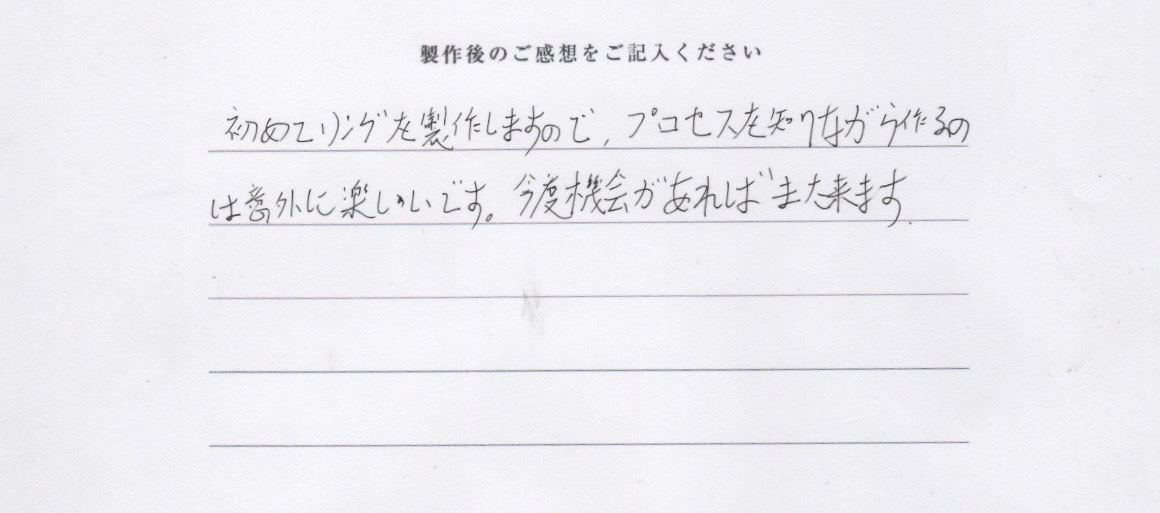 製作後のご感想をご記入ください
初めてリングを製作しますので、プロセスを知りながら作るの
は意外に楽しいです。今度機会があればまた来ます.